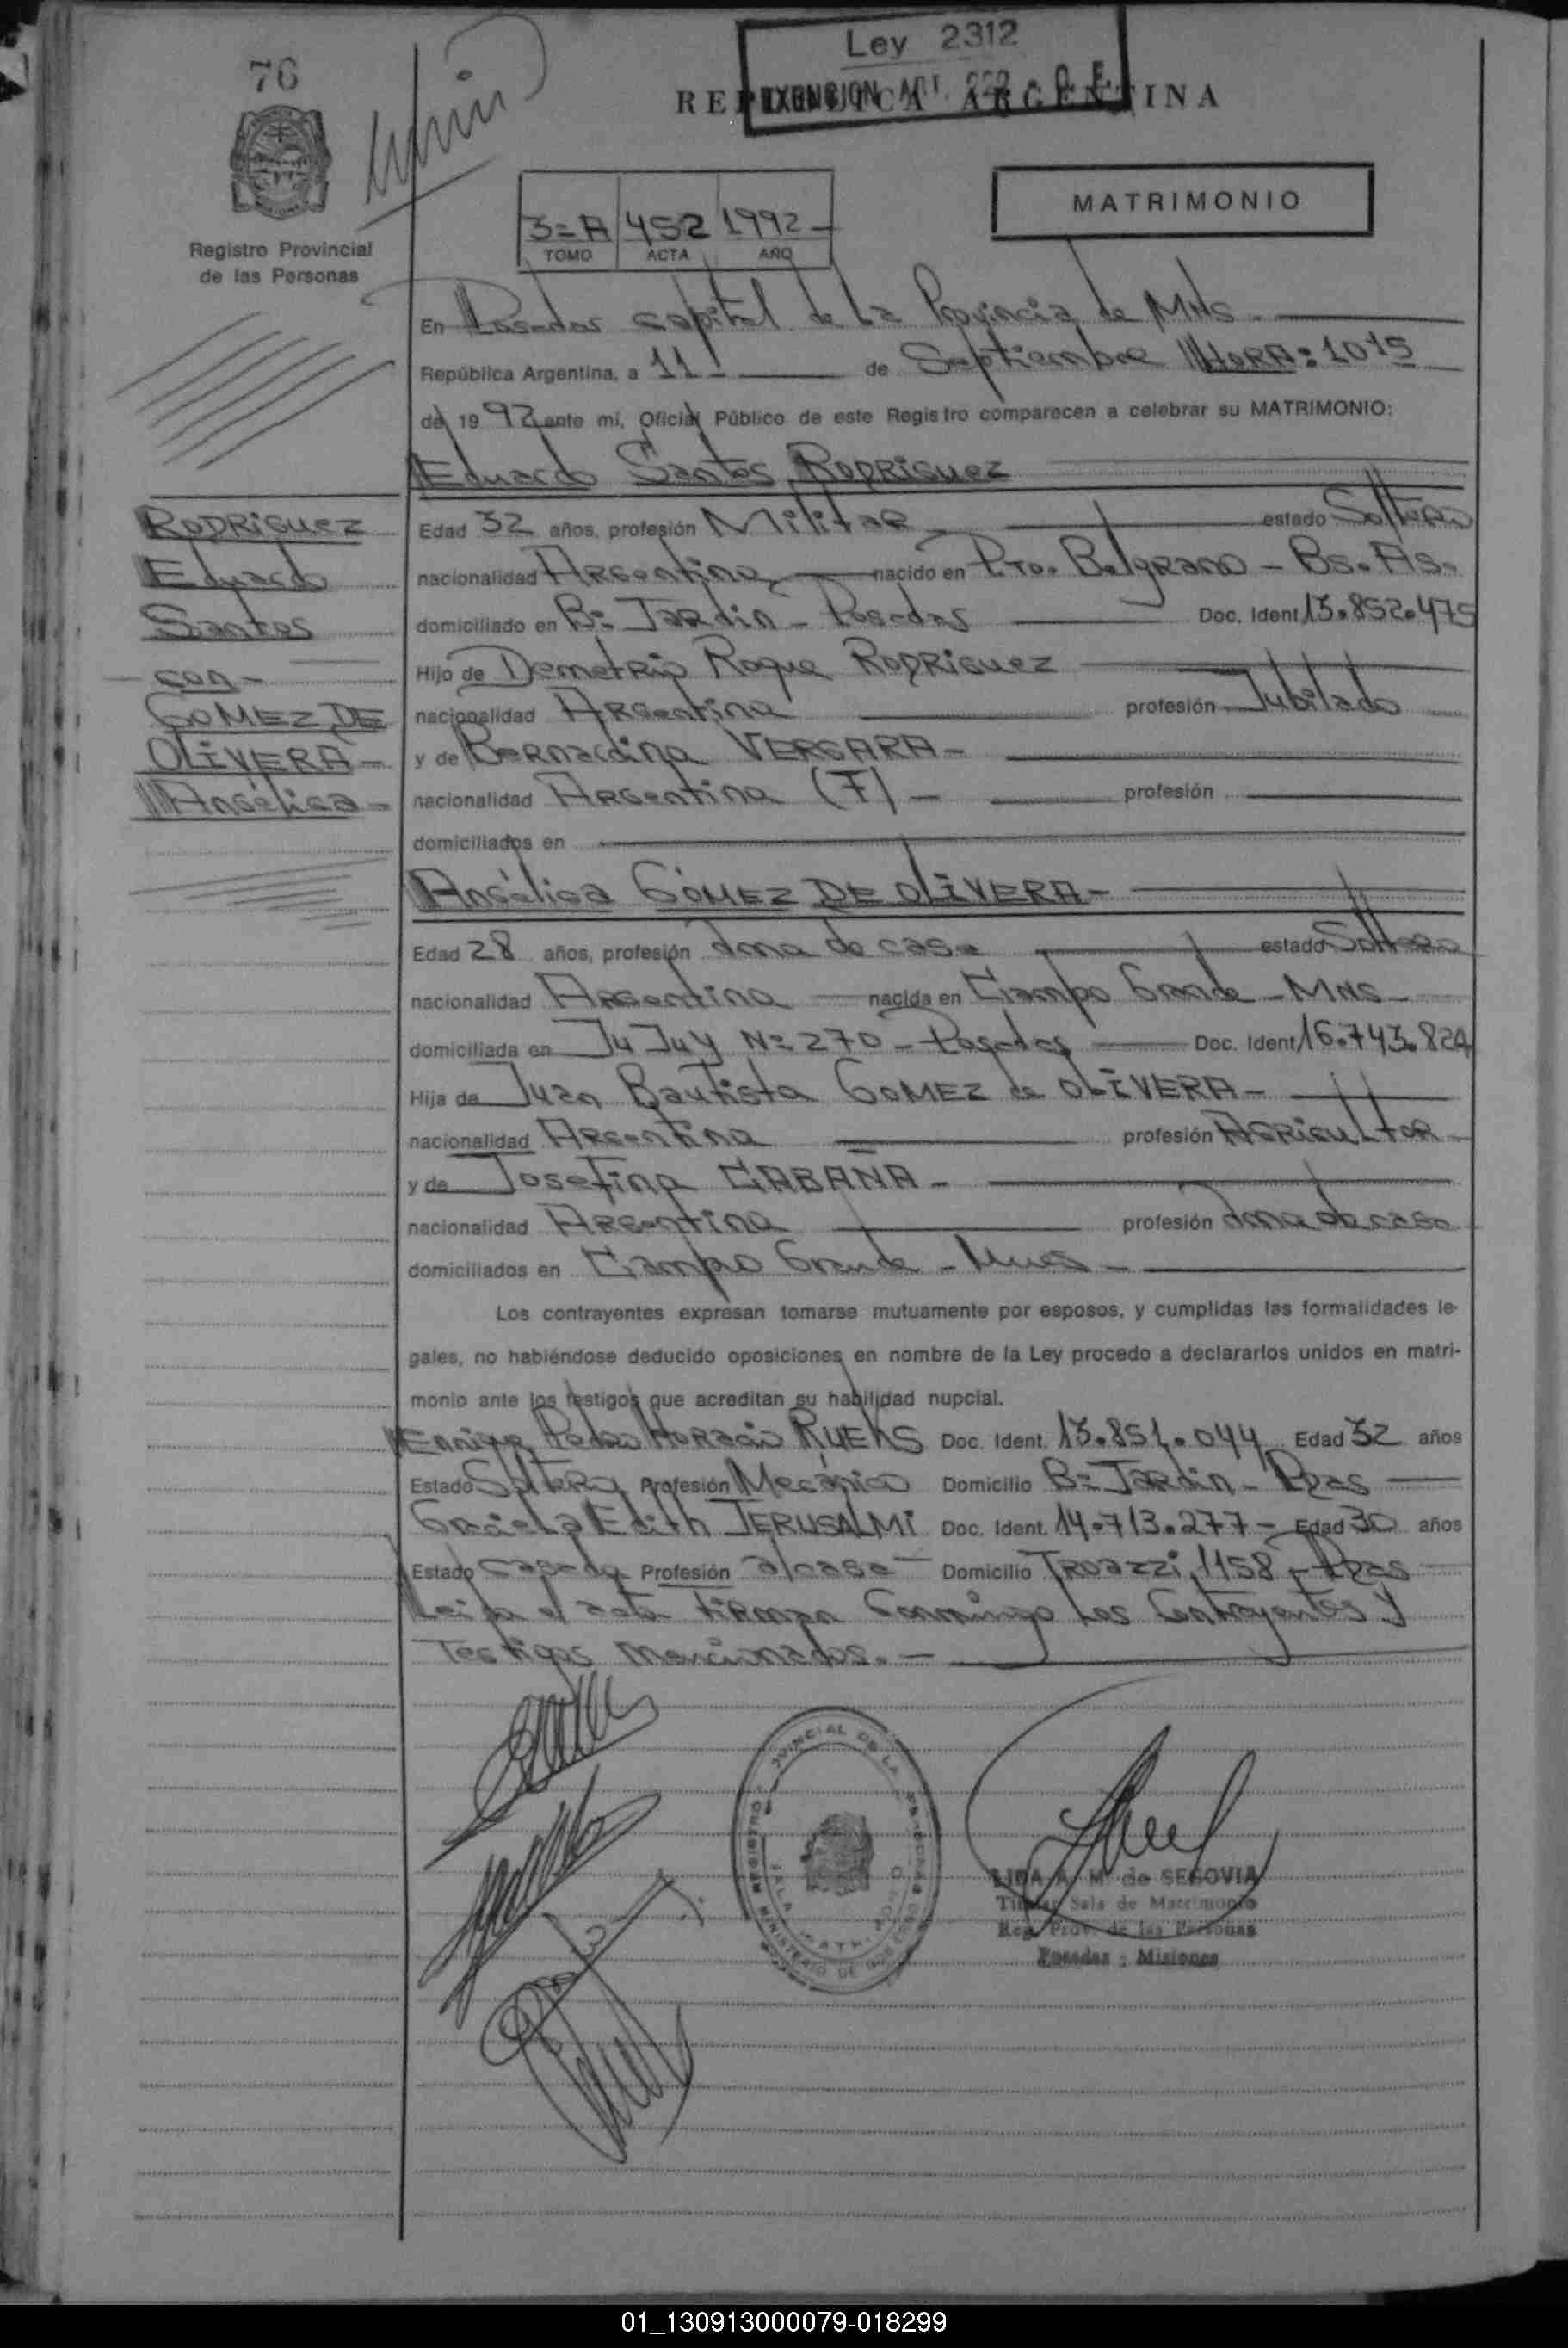 76
Ley 2312
EXENCION ART.
REPUBLICA ARGENTINA
MATRIMONIO
3=A 452 1992-
TOMO ACTA AÑO
Registro Provincial
de las Personas
En Posadas capital de La Provincia de MNS-
República Argentina, a 11 de Septiembre HORA: 1015
de 19 92 ante mi, Oficial Público de este Registro comparecen a celebrar su MATRIMONIO:
Eduardo Santos RODRIGUEZ
RODRIGUEZ
Eduardo
Santos
-con-
GOMEZ DE
OLIVERA-
Angélica-
Edad 32 años, profesión Militar- estado Soltero
nacionalidad Argentina nacido en Pto. Belgrano - Bs. As.
domiciliado en B= Jardin - Posadas Doc. Ident 13.852.475
Hijo de Demetrio Roque RODRIGUEZ
nacionalidad Argentina profesión Jubilado
y de Bernardina VERGARA-
nacionalidad Argentina (F)- profesión
domiciliados en
Angélica GOMEZ DE OLIVERA-
Edad 28 años, profesión Ama de casa estado Soltera
nacionalidad Argentina nacida en Campo Grande - MNS-
domiciliada en JuJuy N= 270 - Posadas Doc. Ident 16.743.824
Hija de Juan Bautista GOMEZ de OLIVERA-
nacionalidad Argentina profesión Agricultor
y de Josefina CABAÑA-
nacionalidad Argentina profesión Ama de casa
domiciliados en Campo Grande - Mnes-
Los contrayentes expresan tomarse mutuamente por esposos, y cumplidas las formalidades le-
gales, no habiéndose deducido oposiciones en nombre de la Ley procedo a declararlos unidos en matri-
monio ante los testigos que acreditan su habilidad nupcial.
Pedro Horacio Doc. Ident. 13.851.044 Edad 32 años
Estado Soltero Profesión Mecánico Domicilio B= Jardin - Pdas
Graciela Edith JERUSALMI Doc. Ident. 14.713.277- Edad 30 años
Estado Casada Profesión a/casa- Domicilio 1158 - Pdas
Leida el acta firman Conmingo Los Contrayentes y
Testigos mencionados.-
LIDA A. M. de SEGOVIA
Titular Sala de Matrimonio
Reg. Prov. de las Personas
Posadas - Misiones
01_130913000079-018299